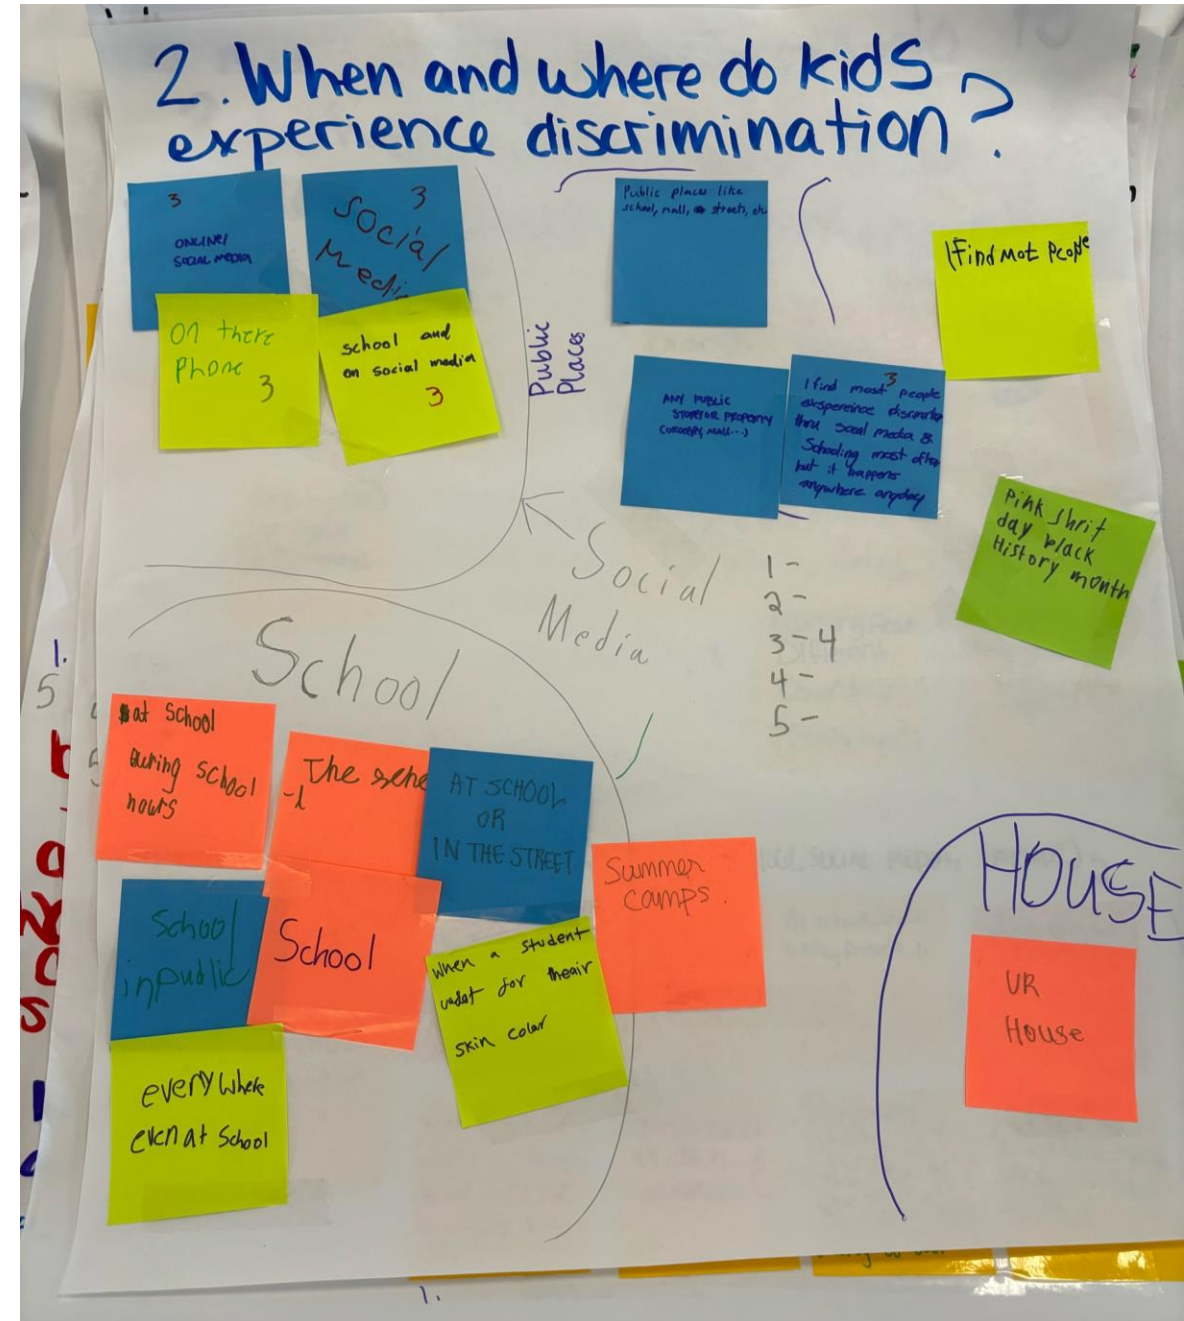 2. When and where do kids
experience discrimination?
3
ONLINE/
SOCIAL MEDIA
3
Social
Media
On there
Phone
3
school and
on social media
3
Public
Places
Public places like
school, mall, streets, etc
ANY PUBLIC
STORE OR PROPERTY
(GROCERY, MALL...)
3
I find most people
exspereince
thru social media &
Schooling most often
but it happens
anywhere anyday
I Find Mot People
Pink Shrit
day black
History month
Social
Media
1-
2-
3-4
4-
5-
School
at School
During School
hours
The sche
-l
AT SCHOOL
OR
IN THE STREET
School
in public
School
when a student
for theair
skin color
everywhere
even at School
Summer
camps.
HOUSE
UR
House
1.
5
1.